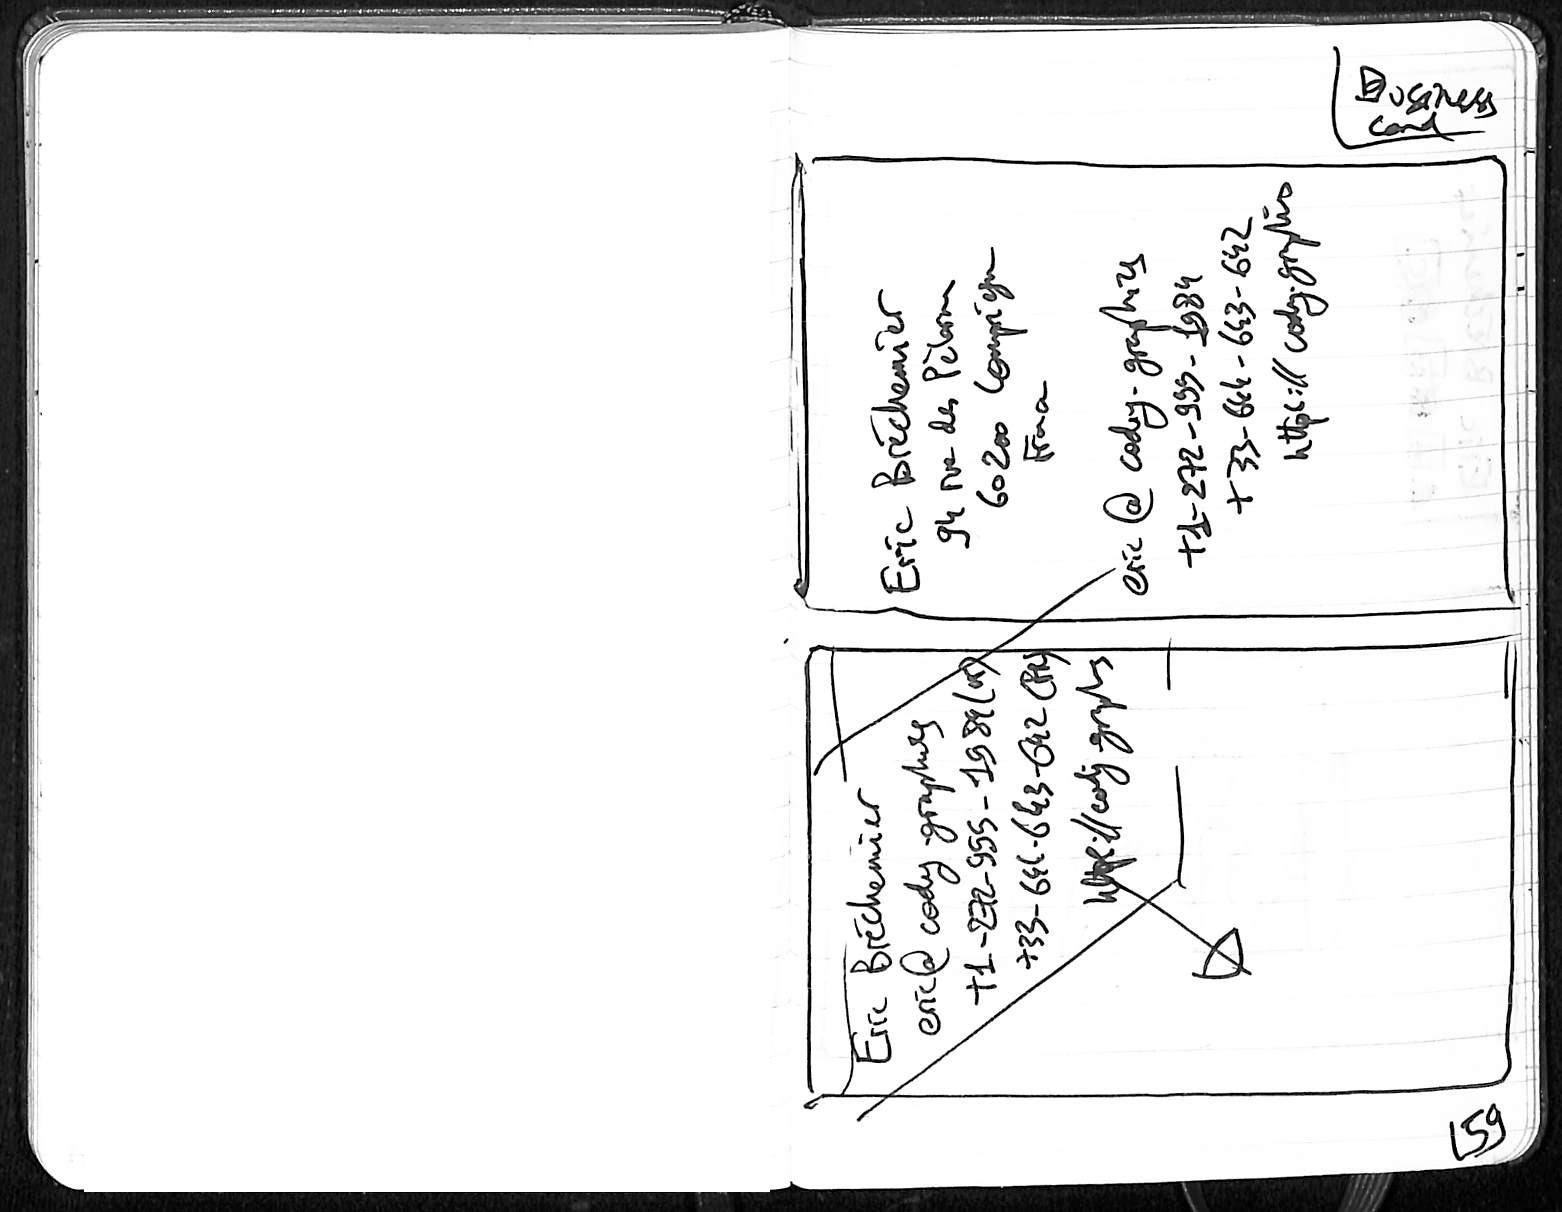 Business
card
Eric Bréchemier
94 rue des
60200
eric@cody.graphics
+1-272-955-1984
+33-644-643-642
https://cody.graphics
Eric Bréchemier
eric@cody.graphics
+1-272-955-1984
+33-644-643-642
https://cody.graphics
159